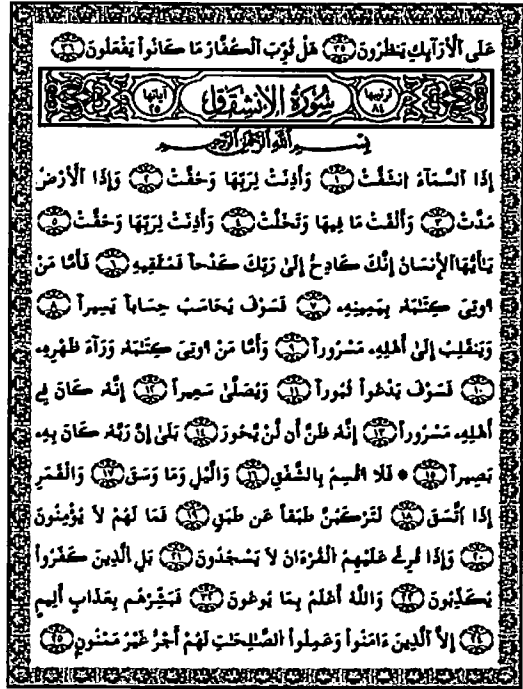 عَلَى اَلْأَرَآئِكِ يَنظُرُونَ ٣٥ هَلْ ثُوِّبَ اَلْكُفَّارُ مَا كَانُواْ يَفْعَلُونَ ٣٦
ترتيبها ٨٤ سُورَةُ الانشقاق آياتها ٢٥
بِسْمِ اللَّهِ الرَّحْمَنِ الرَّحِيمِ
إِذَا اَلسَّمَآءُ اُنشَقَّتْ ١ وَأَذِنَتْ لِرَبِّهَا وَحُقَّتْ ٢ وَإِذَا اَلْأَرْضُ
مُدَّتْ ٣ وَأَلْقَتْ مَا فِيهَا وَتَخَلَّتْ ٤ وَأَذِنَتْ لِرَبِّهَا وَحُقَّتْ ٥
يَٰأَيُّهَا اَلْإِنسَانُ إِنَّكَ كَادِحٌ إِلَىٰ رَبِّكَ كَدْحاً فَمُلَٰقِيهِ ٦ فَأَمَّا مَنْ
أُوتِيَ كِتَٰبَهُۥ بِيَمِينِهِۦ ٧ فَسَوْفَ يُحَاسَبُ حِسَاباً يَسِيراً ٨
وَيَنقَلِبُ إِلَىٰ أَهْلِهِۦ مَسْرُوراً ٩ وَأَمَّا مَنْ أُوتِيَ كِتَٰبَهُۥ وَرَآءَ ظَهْرِهِۦ
١٠ فَسَوْفَ يَدْعُواْ ثُبُوراً ١١ وَيُصَلَّىٰ سَعِيراً ١٢ إِنَّهُۥ كَانَ فِے
أَهْلِهِۦ مَسْرُوراً ١٣ إِنَّهُۥ ظَنَّ أَن لَّنْ يَّحُورَ ١٤ بَلَىٰ إِنَّ رَبَّهُۥ كَانَ بِهِۦ
بَصِيراً ١٥ * فَلَا أُقْسِمُ بِالشَّفَقِ ١٦ وَالَّيْلِ وَمَا وَسَقَ ١٧ وَالْقَمَرِ
إِذَا اَتَّسَقَ ١٨ لَتَرْكَبُنَّ طَبَقاً عَن طَبَقٍ ١٩ فَمَا لَهُمْ لَا يُؤْمِنُونَ
٢٠ وَإِذَا قُرِئَ عَلَيْهِمُ اُلْقُرْءَانُ لَا يَسْجُدُونَ ٢١ بَلِ اِلَّذِينَ كَفَرُواْ
يُكَذِّبُونَ ٢٢ وَاللَّهُ أَعْلَمُ بِمَا يُوعُونَ ٢٣ فَبَشِّرْهُم بِعَذَابٍ أَلِيمٍ
٢٤ إِلَّا اَلَّذِينَ ءَامَنُواْ وَعَمِلُواْ اُلصَّٰلِحَٰتِ لَهُمْ أَجْرٌ غَيْرُ مَمْنُونٍ ٢٥